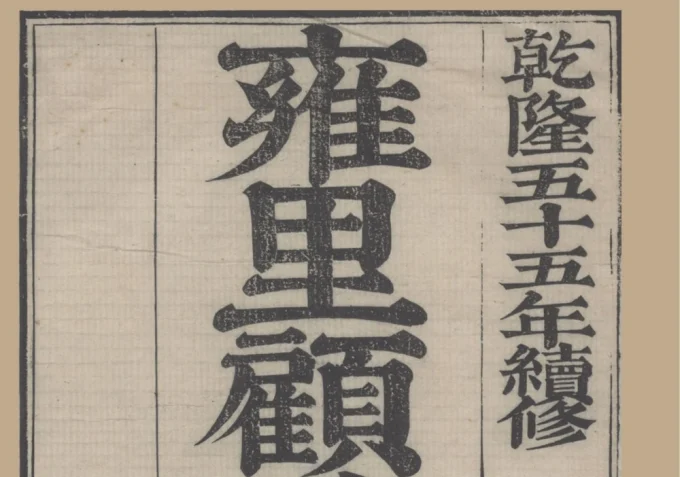 乾隆五十五年續修
雍里顧